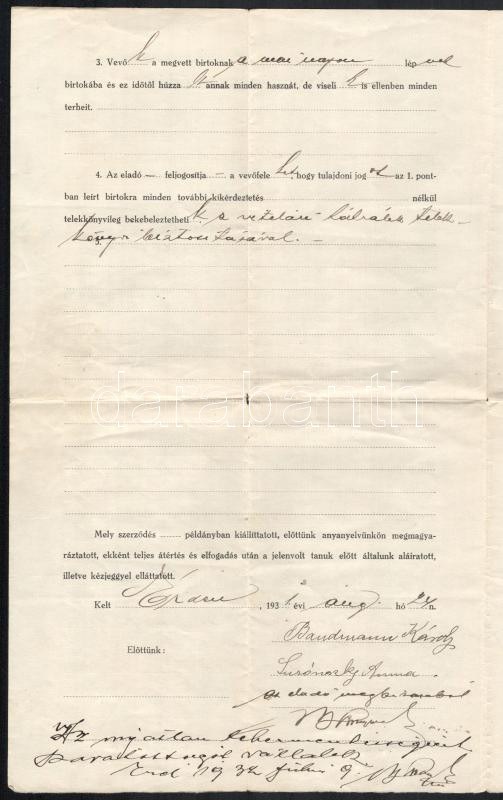 3. Vevő k a megvett birtoknak a mai napon lép vel
birtokába és ez időtől húzza annak minden hasznát, de viseli k is ellenben minden
terheit.
4. Az eladó — feljogosítja — a vevőfelet, hogy tulajdoni jogát az 1. pont-
ban leírt birtokra minden további kikérdeztetés nélkül
telekkönyvileg bekebeleztethetik a vételári hátralék telek-
könyvi biztosításával. —
darabanth
Mely szerződés ........ példányban kiállíttatott, előttünk anyanyelvünkön megmagya-
ráztatott, ekként teljes átértés és elfogadás után a jelenvolt tanuk előtt általunk aláiratott,
illetve kézjeggyel elláttatott.
Kelt Érden, 1931. évi aug. hó 24n.
Baudmann Károly
Előttünk:
Anna
az eladó megbizásából
Érd 1932 julius 9.